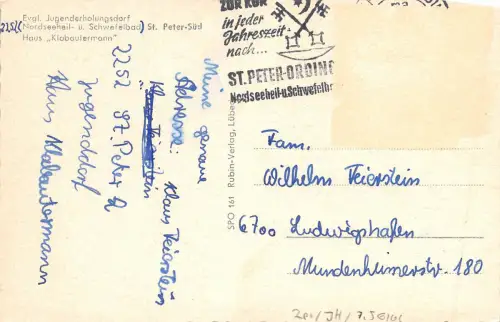 Evgl. Jugenderholungsdorf
2252 (Nordseeheil- u. Schwefelbad) St. Peter-Süd
Haus „Klabautermann"
ZUR KUR
in jeder
Jahreszeit
nach...
ST. PETER-ORDING
Nordseeheil-u.Schwefelb
Meine genaue
Adresse:
Klaus Feierstein
2252 St. Peter 2
Jugenddorf
Haus Klabautermann
SPO 161 Rubin-Verlag, Lübe
Fam.
Wilhelm Feierstein
6700 Ludwigshafen
Mundenheimerstr. 180